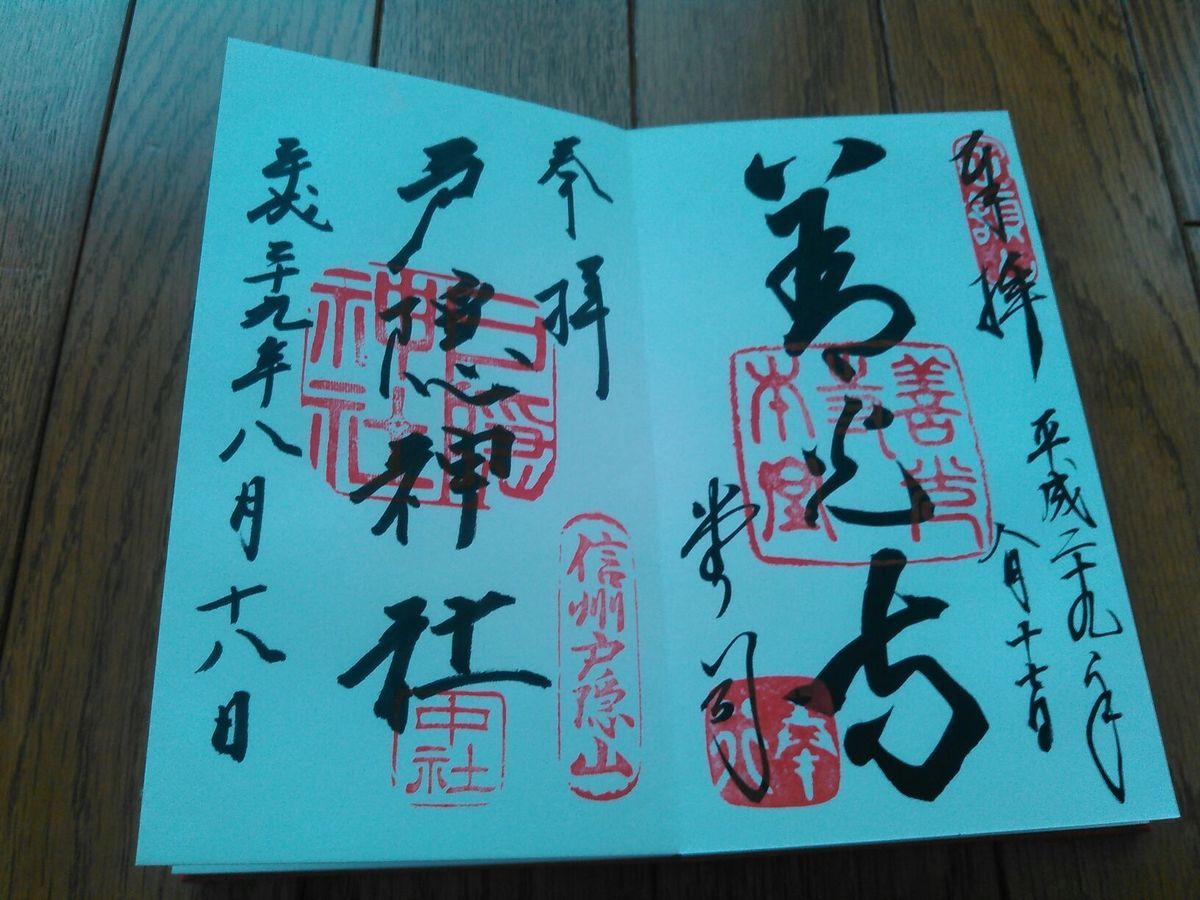 奉拝
平成二十九年
八月十七日
善光寺
善光寺
本堂
奉拝
信州戸隠山
戸隠神社
戸隠
神社
中社
平成二十九年八月十八日